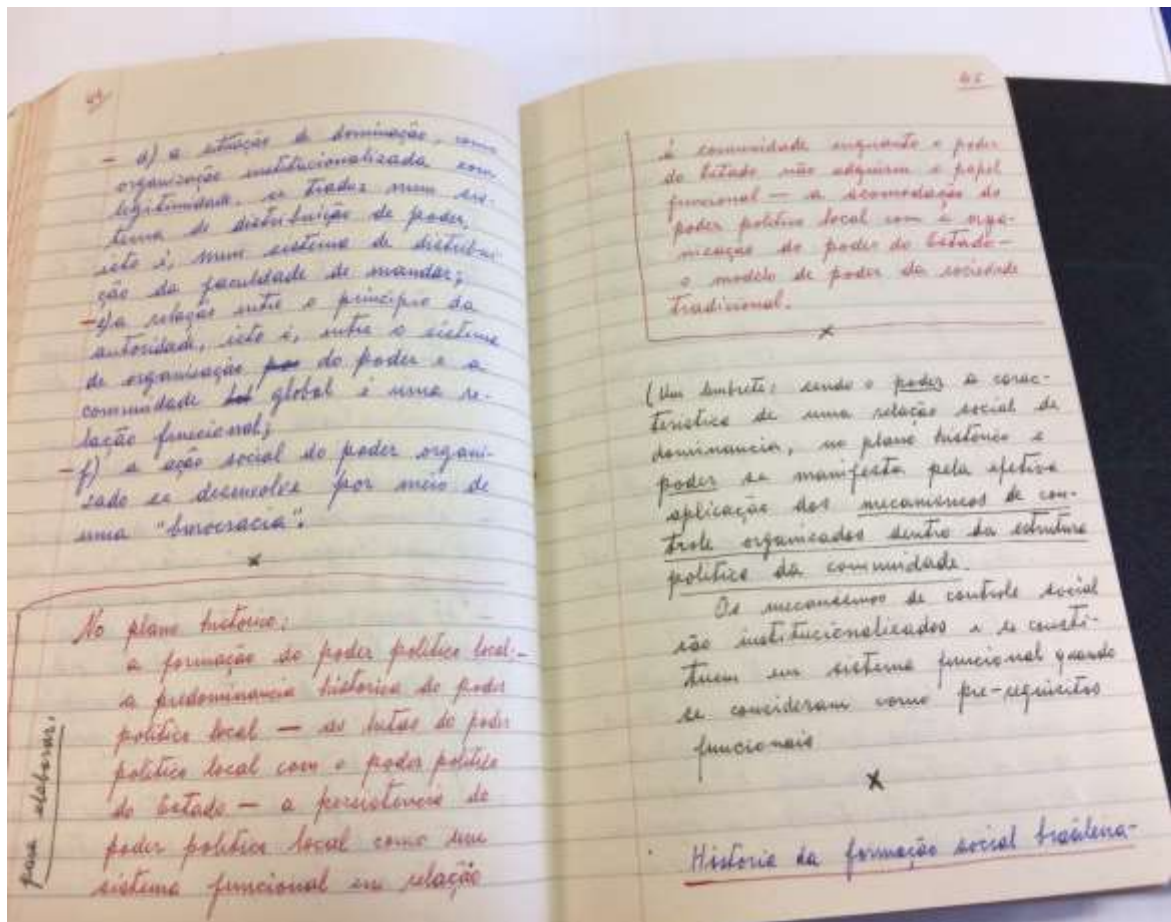 44
- d) a situação de dominação, como
organização institucionalizada com
legitimidade, se traduz num sis-
tema de distribuição de poder,
isto é, num sistema de distribui-
ção da faculdade de mandar;
- e) a relação entre o princípio da
autoridade, isto é, entre o sistema
de organização do poder e a
comunidade global é uma re-
lação funcional;
- f) a ação social do poder organi-
zado se desenvolve por meio de
uma "burocracia".
x
No plano histórico:
a formação do poder político local -
a predominancia historica do poder
político local — as lutas do poder
político local com o poder político
do Estado — a persistencia do
poder político local como um
sistema funcional em relação
para elaborar:
45
à comunidade enquanto o poder
do Estado não adquirem o papel
funcional — a acomodação do
poder político local com a orga-
nização do poder do Estado —
o modelo de poder da sociedade
tradicional.
x
(Um lembrete: sendo o poder a carac-
teristica de uma relação social de
dominancia, no plano histórico o
poder se manifesta pela efetiva
aplicação dos mecanismos de con-
trole organizados dentro da estrutura
política da comunidade.
Os mecanismos de controle social
são institucionalizados e se consti-
tuem um sistema funcional quando
se consideram como pre-requisitos
funcionais
x
Historia da formação social brasileira -